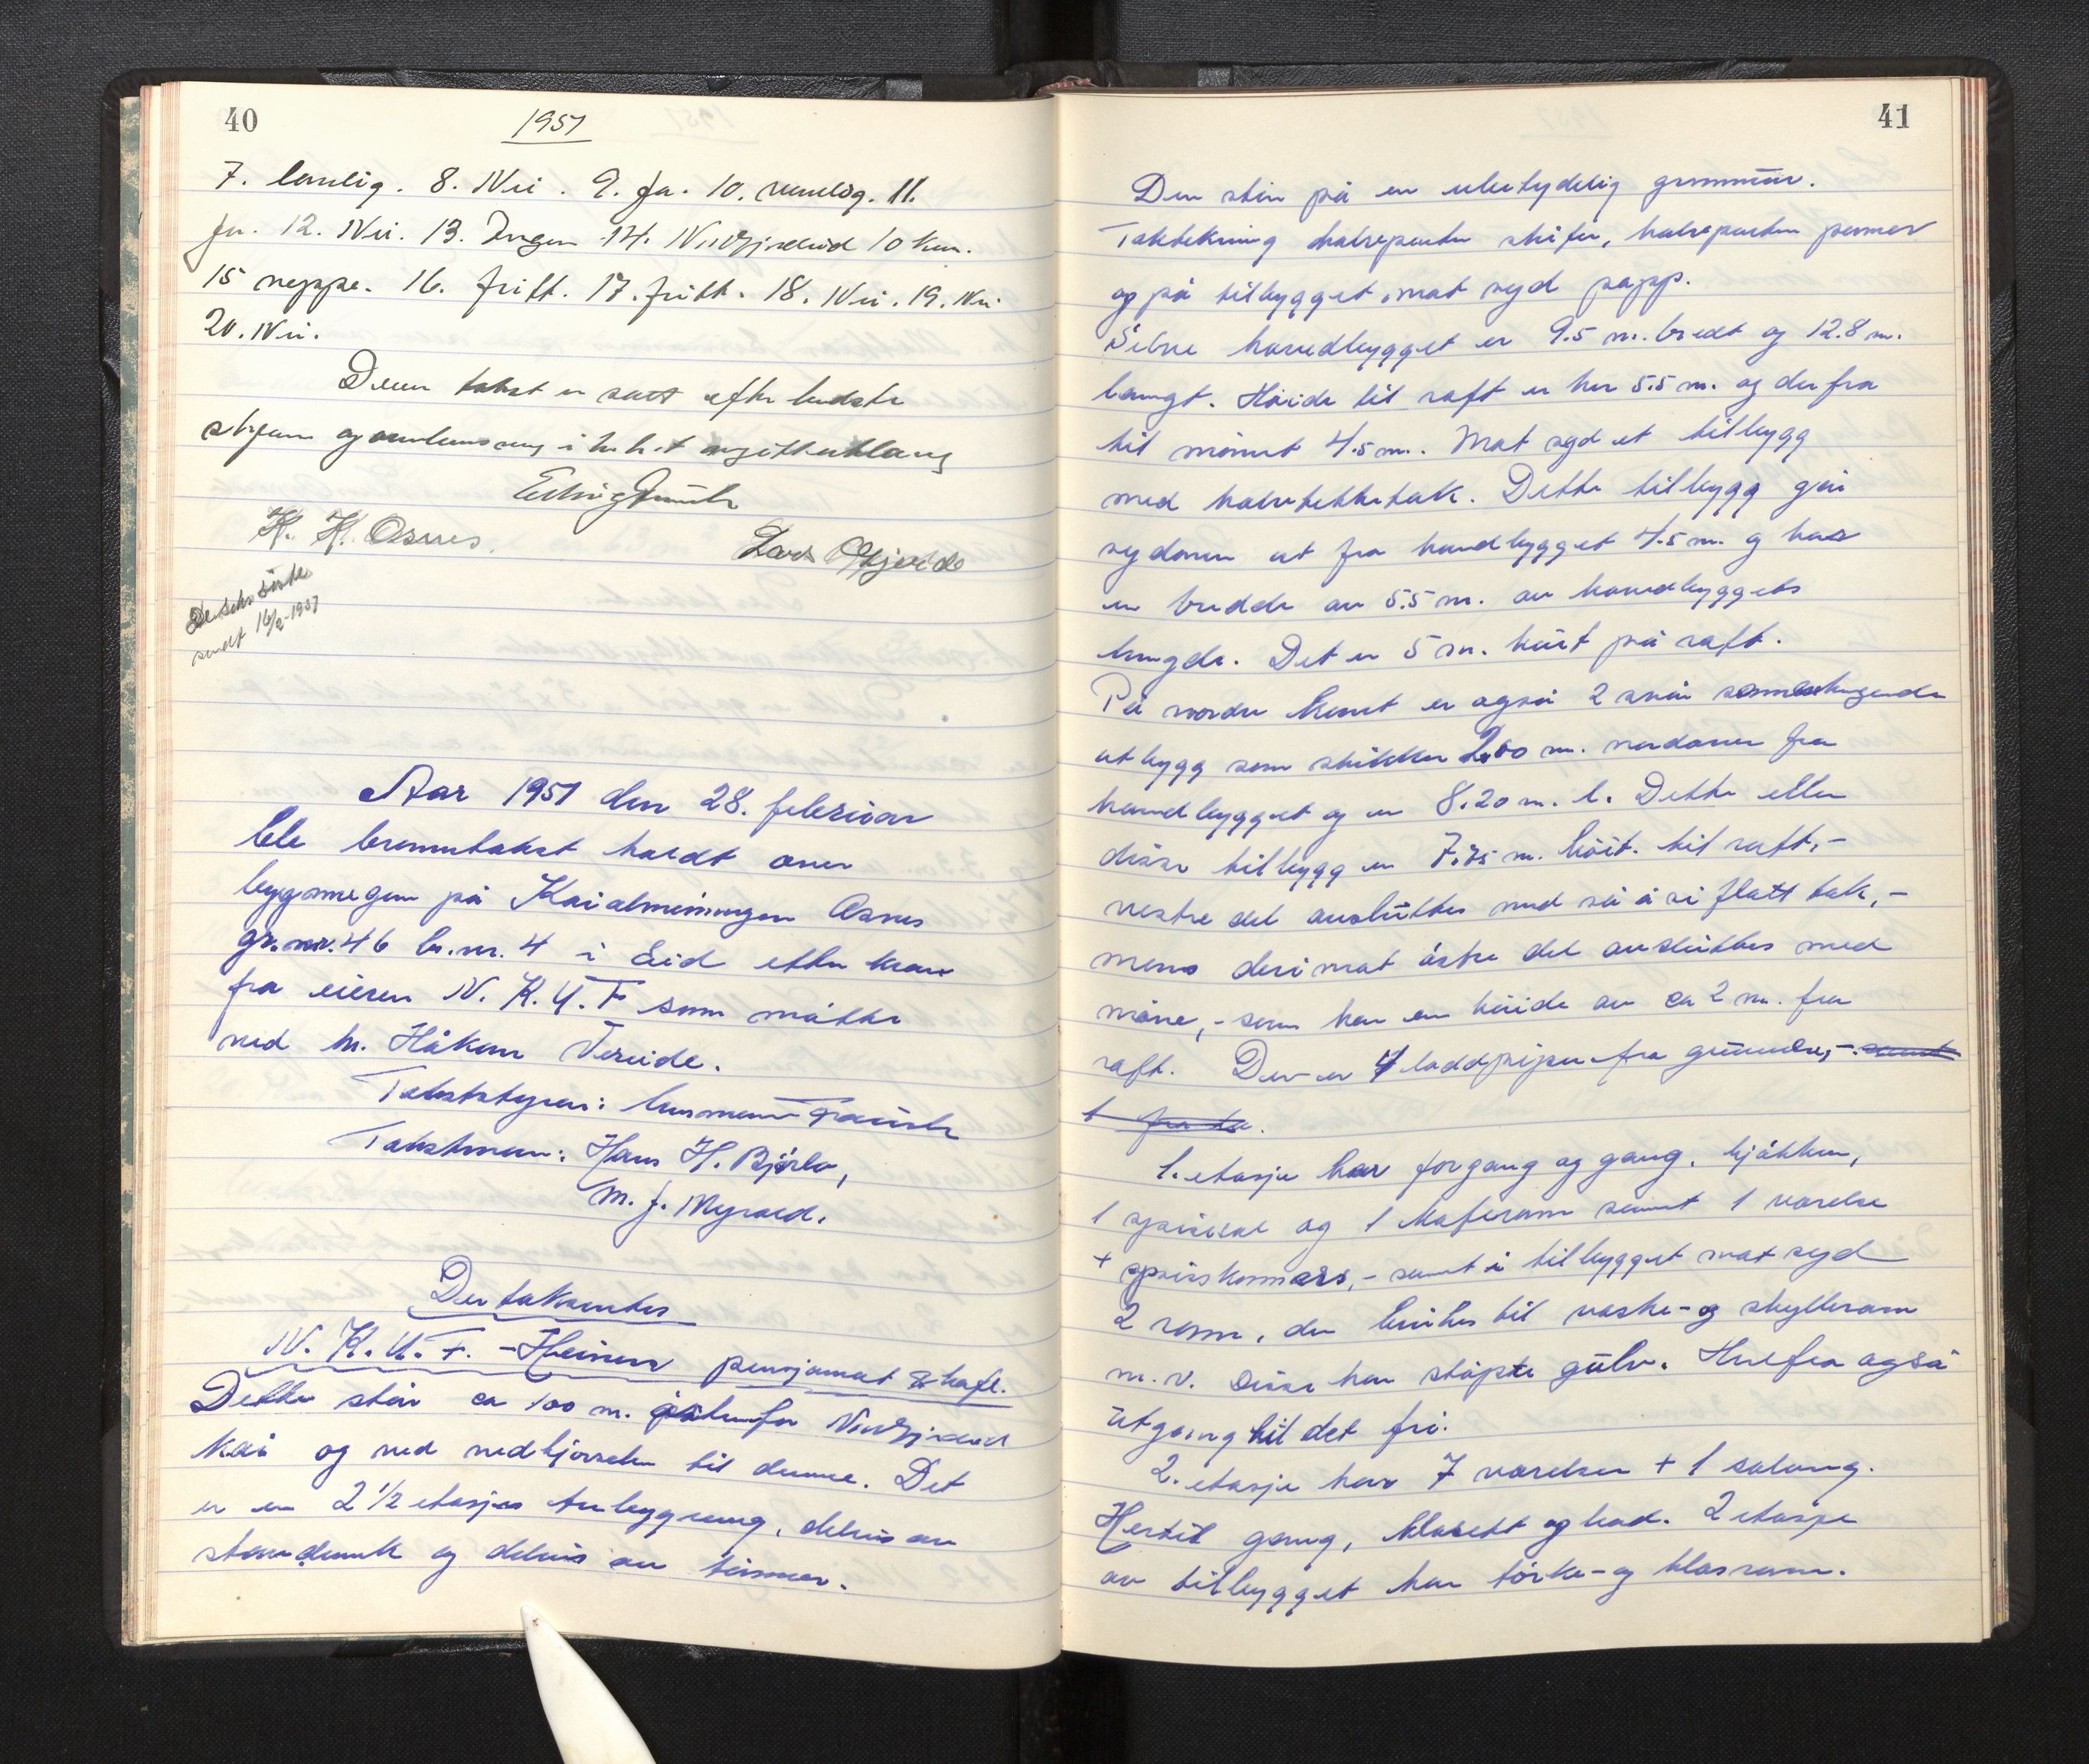 40
1951
7. lonlig. 8. Nei. 9. Ja. 10. vanleg. 11.
Ja. 12. Nei. 13. Ingen 14. Nordfjordeid 10 km.
15 neppe. 16. fritt. 17. fritt. 18. Nei. 19. Nei
20. Nei.
Denne takst er satt efter bedste
skjønn og
H. H. Osnes. Lars Gjerde
sendt 16/2-1951
Aar 1951 den 28. februar
ble branntakst holdt over
bygsmegen på Kaialmenningen Osnes
gr.nr. 46 br.nr. 4 i Eid etter krav
fra eieren N. K. U. F som måtte
ved hr. Håkon Vereide.
Takststyrer: lensmann
Takstmenn: Hans H. Bjørlo,
M. J. Myrold.
Der taksertes
N. K. U. F. - Heimen pensjonat & kafe.
Dette står ca 100 m. østenfor Nordfjordeid
kai og ved nedkjørselen til denne. Det
er en 2 1/2 etasjes trebygning, delvis av
stenderverk og delvis av tømmer.
41
Den står på en ubetydelig grunnmur.
Taktekning halvparten skifer, halvparten panner
og på tilbygget mot syd papp.
Selve hovedbygget er 9.5 m. bredt og 12.8 m.
langt. Høide til raft er her 5.5 m. og derfra
til mønet 4.5 m. Mot syd et tilbygg
med halvtekketak. Dette tilbygg går
sydover ut fra hovedbygget 4.5 m. og har
en bredde av 5.5 m. av hovedbyggets
lengde. Det er 5 m. høit på raft.
På nordre kant er også 2 små sammenhengende
utbygg som stikker 2.80 m. nordover fra
hovedbygget og er 8.20 m. l. Dette eller
disse tilbygg er 7.75 m. høit. til raft, -
vestre del avsluttes med så å si flatt tak, -
mens derimot østre del avsluttes med
møne, - som har en høide av ca 2 m. fra
raft. Der er 4 loddpiper fra grunnen, - samt
1 fra
1. etasje har forgang og gang, kjøkken,
1 spisesal og 1 kaferom samt 1 værelse
+ spiskammers, - samt i tilbygget mot syd
2 rom, der brukes til vaske- og skyllerom
m. v. Disse har støpte gulv. Herfra også
utgang til det fri.
2. etasje har 7 værelser + 1 salong.
Hertil gang, klosett og bad. 2 etasje
av tilbygget har tørke- og klosrom.